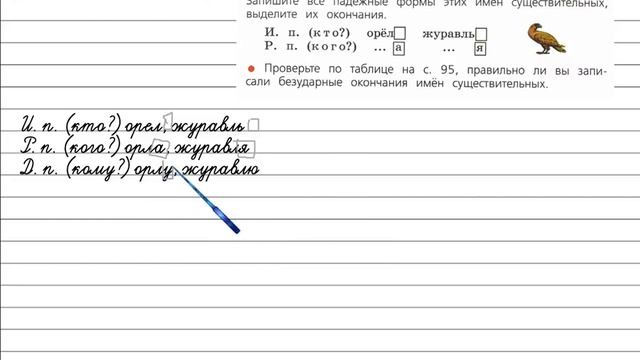 Запишите все падежные формы этих имён существительных,
выделите их окончания.
И. п. (кто?) орёл журавль
Р. п. (кого?) ... а ... я
● Проверьте по таблице на с. 95, правильно ли вы запи-
сали безударные окончания имён существительных.
И. п. (кто?) орел, журавль
Р. п. (кого?) орла, журавля
Д. п. (кому?) орлу, журавлю